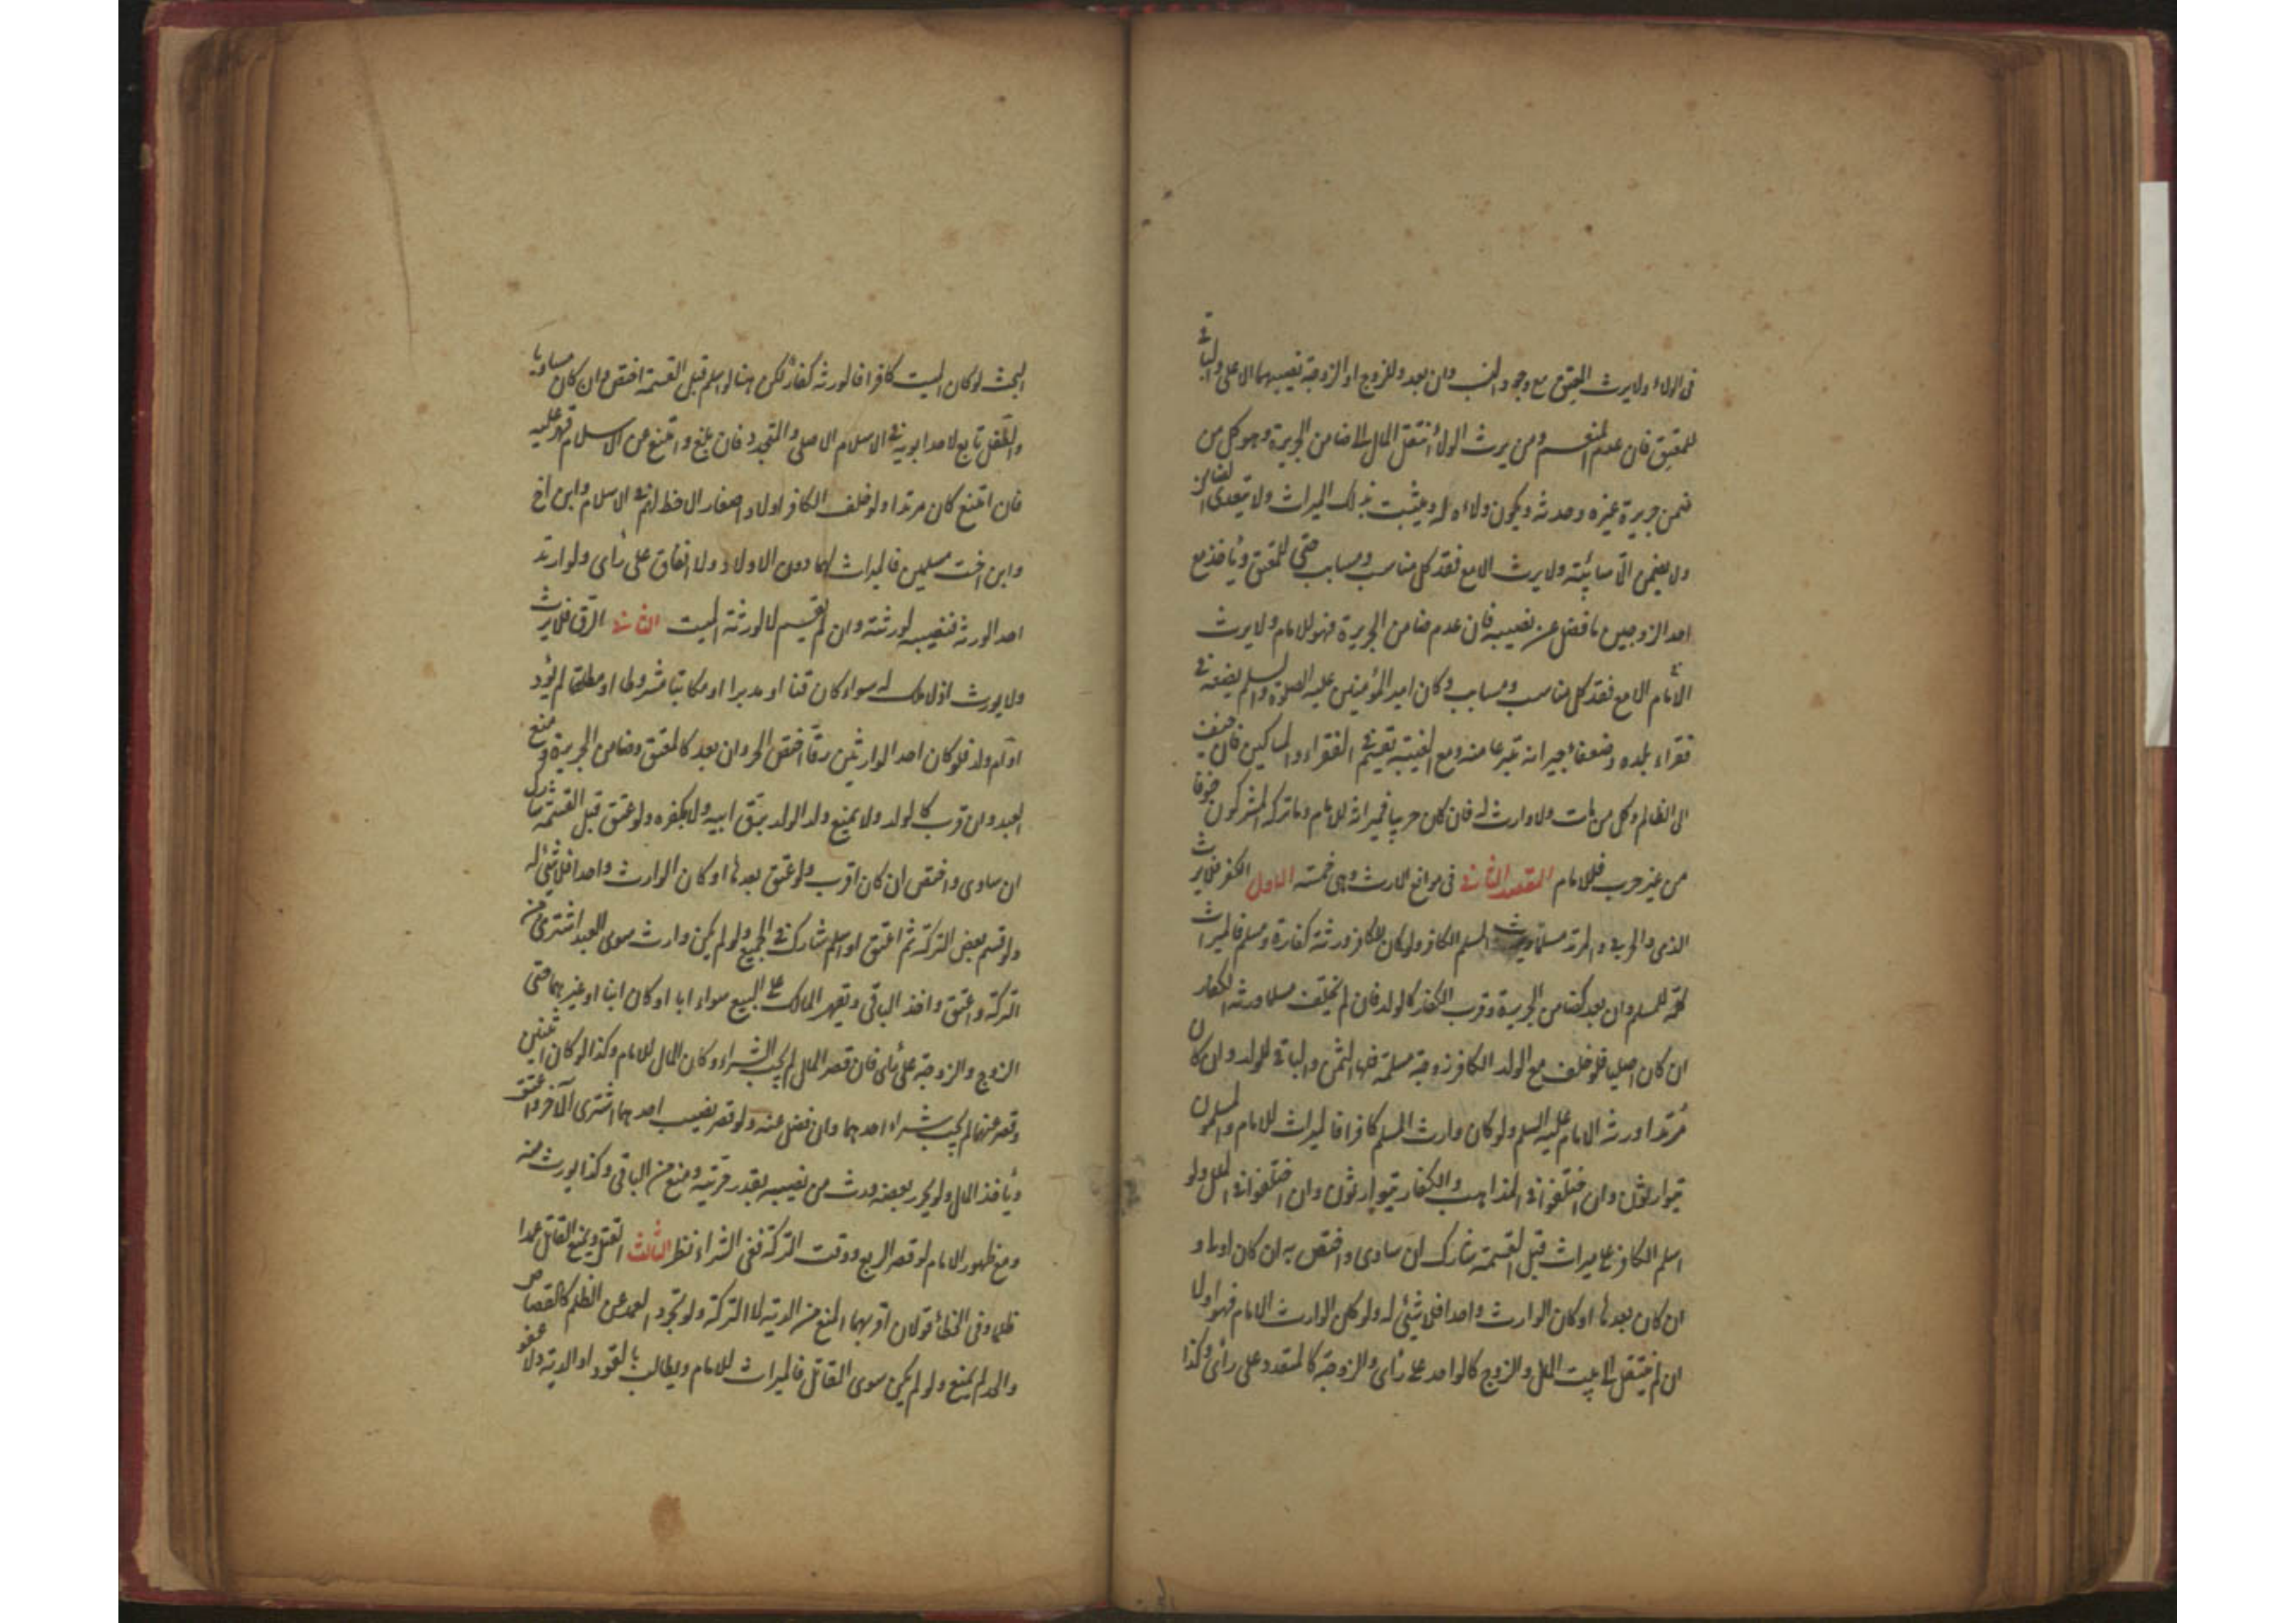 فى الولاء ولا يرث المعتق مع وجود النسب وان بعد وللزوج او الزوجة نصيبهما الاعلى والباقى
للمعتق فان عدم المنعم ومن يرث الولاء انتقل المال الى ضامن الجريرة وهو كل من
ضمن جريرة غيره وحدثه ويكون ولاءه له ويثبت بذلك الميراث ولا يتعدى الضامن
ولا يضمن الّا سائبته ولا يرث الا مع فقد كل مناسب ومسابب حتى المعتق ويأخذ مع
احد الزوجين ما فضل عن نصيبه فان عدم ضامن الجريرة فهو للامام ولا يرث
الامام الا مع فقد كل مناسب ومسابب وكان امير المؤمنين عليه الصلوة والسلم يضعه فى
فقراء بلده وضعفاء جيرانه تبرعا منه ومع الغيبة يقسم فى الفقراء والمساكين فان
الى الظالم وكل من مات ولا وارث له فان كان حربيا فميراثه للامام وما تركه المشركون خوفا
من غير حرب فللامام المقصد الثانى فى موانع الارث وهى خمسة الاول الكفر فلا يرث
الذمى والحربى والمرتد مسلما ويرث المسلم الكافر ولو كان للكافر ورثة كفارة ومسلم فالميراث
كله للمسلم وان بعد كضامن الجريرة وقرب الكفار كالولد فان لم يخلف مسلما ورثه الكفار
ان كان اصليا فلو خلف مع الولد الكافر زوجة مسلمة فلها الثمن والباقى للولد وان كان
مرتدا ورثه الامام عليه السلم ولو كان وارث المسلم كافرا فالميراث للامام والمسلمون
يتوارثون وان اختلفوا فى المذاهب والكفار يتوارثون وان اختلفوا فى الملل ولو
اسلم الكافر على ميراث قبل القسمة شارك ان ساوى واختص به ان كان اولى و
ان كان بعدها او كان الوارث واحدا فلا شيئ له ولو كان الوارث الامام فهو اولى
ان لم ينتقل الى بيت المال والزوج كالواحد على رأى والزوجة كالمتعدد على رأى وكذا
البحث لو كان الميت كافرا فالورثه كفار لكن هنا لو اسلم قبل القسمة اختص وان كان مساويا
والطفل تابع لاحد ابويه فى الاسلام الاصلى والمتجدد فان بلغ وامتنع عن الاسلام قهر عليه
فان امتنع كان مرتدا ولو خلف الكافر اولادا صغارا لا حظ لهم فى الاسلام وابن اخ
وابن اخت مسلمين فالميراث لهما دون الاولاد ولا انفاق على رأى ولو ارتد
احد الورثه فنصيبه لورثته وان لم يقسم لا لورثة الميت الثانى الرق فلا يرث
ولا يورث اذ لا ملك له سواء كان قنا او مدبرا او مكاتبا مشروطا او مطلقا لم يؤد
او ام ولد فلو كان احد الوارثين رقا اختص الحر وان بعد كالمعتق وضامن الجريرة ومنع
العبد وان قرب كالولد ولا يمنع ولد الولد برق ابيه ولا بكفره ولو عتق قبل القسمة شارك
ان ساوى واختص ان كان اقرب ولو عتق بعدها او كان الوارث واحدا فلا شيئ له
ولو قسم بعض التركة ثم اعتق او اسلم شارك فى الجميع ولو لم يكن وارث سوى العبد اشترى من
التركة واعتق واخذ الباقى ويقهر المالك على البيع سواء ابا او كان ابنا او غيرهما حتى
الزوج والزوجة على رأى فان قصر المال لم يجب الشراء وكان المال للامام وكذا لو كان اثنين
وقصر عنهما لم يجب شراء احدهما وان فضل عنه ولو قصر نصيب احدهما اشترى الآخر واعتق
ويأخذ المال ولو تحرر بعضه ورث من نصيبه بقدر حريته ومنع من الباقى وكذا يورث منه
ومع ظهور الامام لو قصر الربع ووفت التركة ففى الشراء نظر الثالث القتل ويمنع القاتل عمدا
ظلما وفى الخطأ قولان اقربهما المنع من الدية لا التركة ولو تجرد العمد عن الظلم كالقصاص
والحد لم يمنع ولو لم يكن سوى القاتل فالميراث للامام ويطالب بالقود او الدية ولا عفو